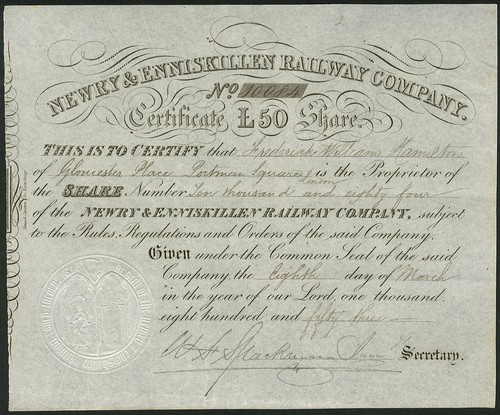 NEWRY & ENNISKILLEN RAILWAY COMPANY.
No. 10084
Certificate £50 Share.
THIS IS TO CERTIFY that Frederick William Hamilton
of Gloucester Place Portman Square London is the Proprietor of
the SHARE. Number Ten thousand and eighty four
of the NEWRY & ENNISKILLEN RAILWAY COMPANY, subject
to the Rules, Regulations and Orders of the said Company.
Given under the Common Seal of the said
Company, the Eighth day of March
in the year of our Lord, one thousand
eight hundred and fifty three
Secretary.